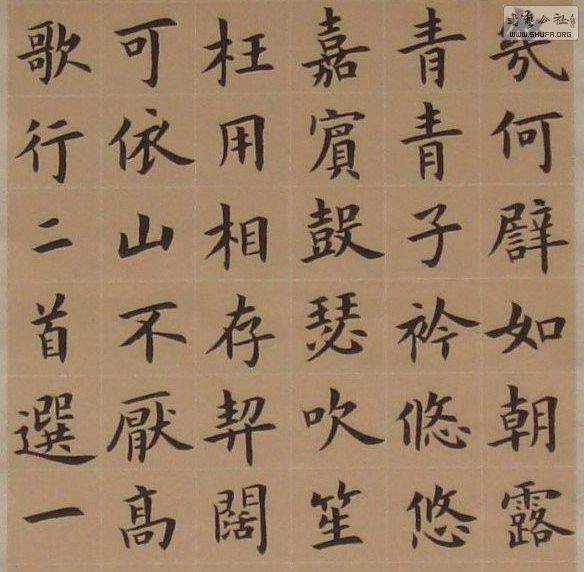 幾何譬如朝露
青青子衿悠悠
嘉賓鼓瑟吹笙
枉用相存契闊
可依山不厭高
歌行二首選一
书艺公社
WWW.SHUFA.ORG